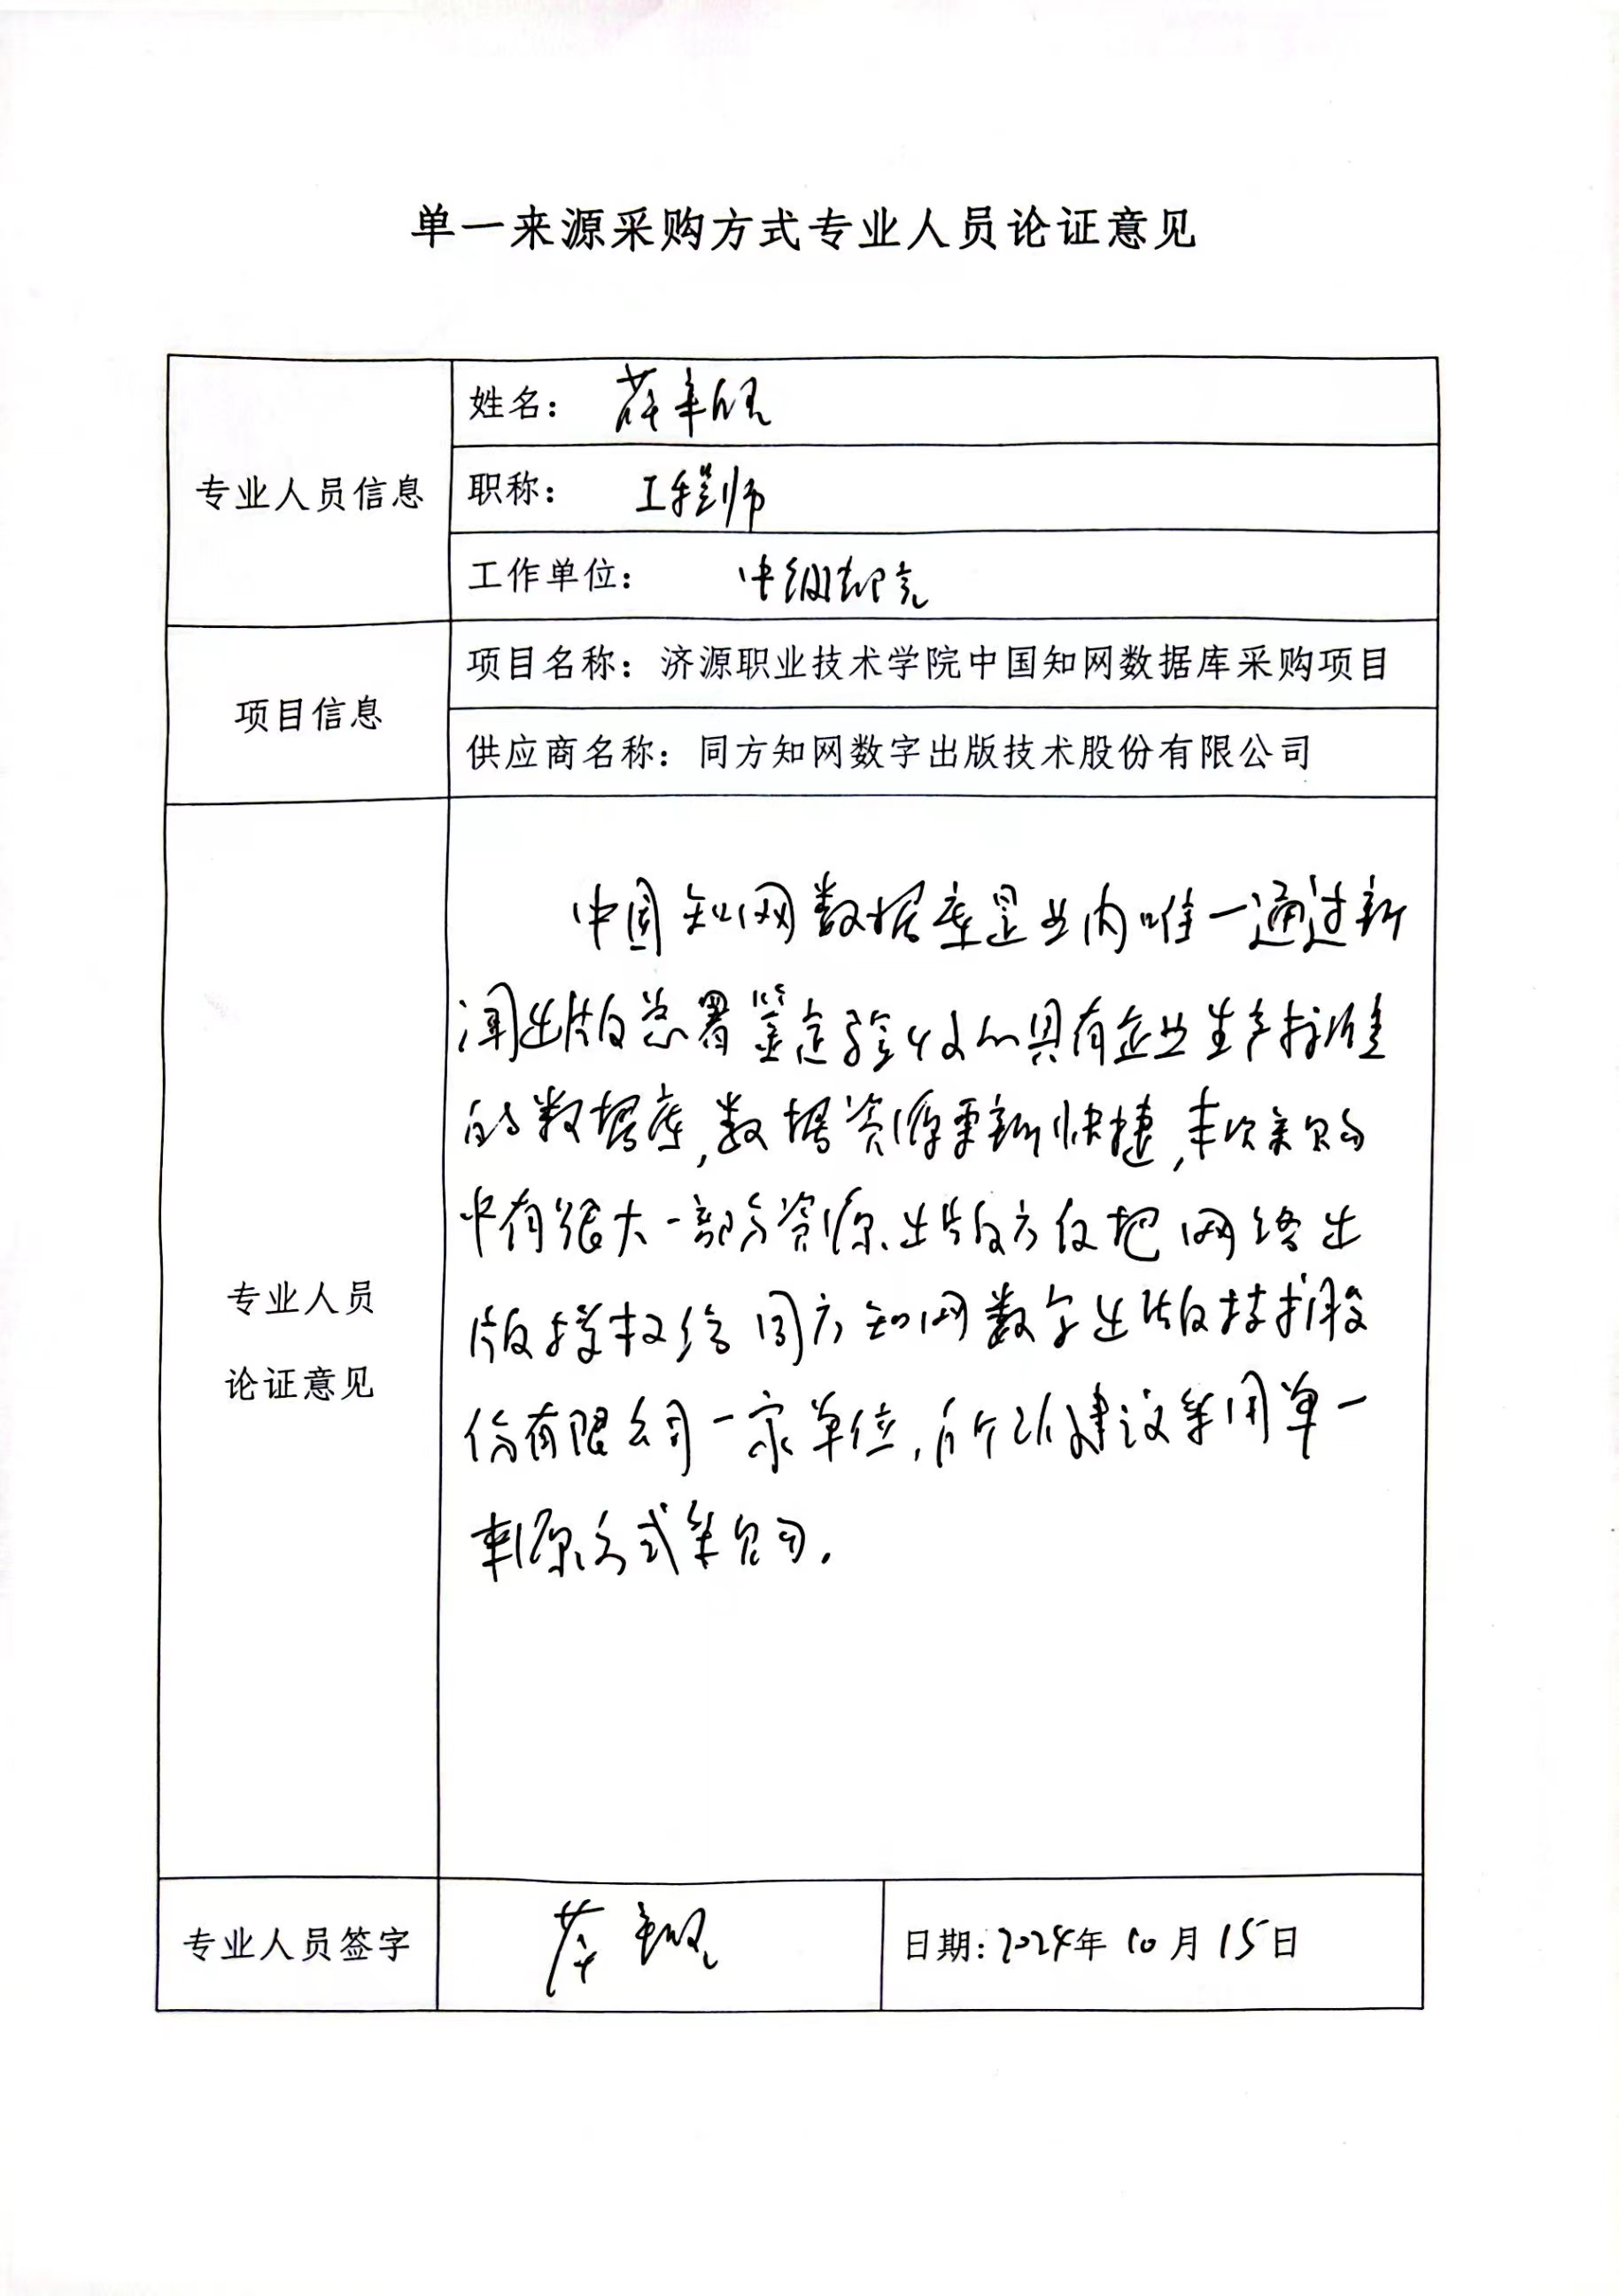 单一来源采购方式专业人员论证意见
专业人员信息
姓名：薛
职称：工程师
工作单位：中
项目信息
项目名称：济源职业技术学院中国知网数据库采购项目
供应商名称：同方知网数字出版技术股份有限公司
专业人员
论证意见
中国知网数据库是业内唯一通过新
闻出版总署鉴定验收的具有企业生产标准
的数据库，数据资源更新快捷，本次采购
中有很大一部分资源出版方仅把网络出
版授权给同方知网数字出版技术股
份有限公司一家单位，所以建议采用单一
来源方式采购。
专业人员签字
薛
日期：2024年10月15日